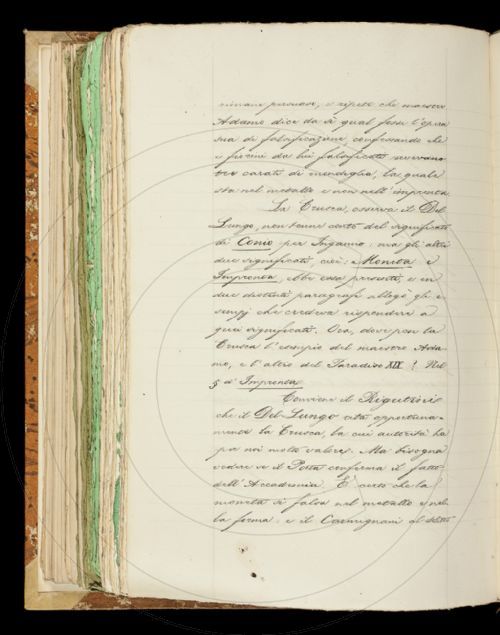 rimane persuaso, e ripete che maestro
Adamo dice da sè qual fosse l'opera
sua di falsificazione, confessando che
i fiorini da lui falsificati avevano
tre carati di mondiglia, la quale
sta nel metallo e non nell'impronta.
La Crusca, osserva il Del
Lungo, non tenne conto del significato
di Conio per Inganno: ma gli altri
due significati, cioè: Moneta e
Impronta, ebbe essa presenti, e in
due distinti paragrafi allegò gli e-
sempj che credeva rispondere a
quei significati. Ora, dove pon la
Crusca l'esempio del maestro Ada-
mo, e l'altro del Paradiso XIX? Nel
§ d'Impronta.
Conviene il Rigutini
che il Del Lungo cita opportuna-
mente la Crusca, la cui autorità ha
per noi molto valore. Ma bisogna
vedere se il Poeta conferma il fatto
dell'Accademia. È certo che la
moneta si falsa nel metallo e nel-
la forma: e il Carmignani al detto